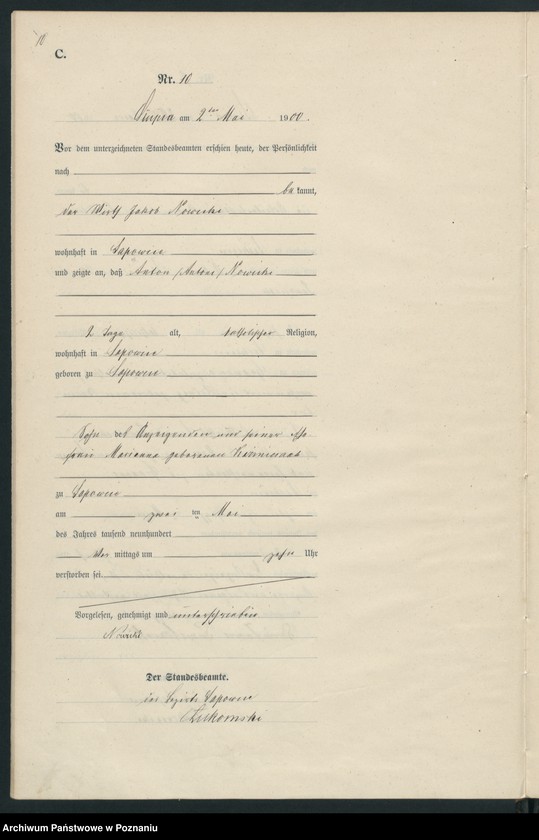 10
C.
Nr. 10
Słupia am 2ten Mai 1900.
Vor dem unterzeichneten Standesbeamten erschien heute, der Persönlichkeit
nach
be kannt,
der Wirth Jakob Nowicki
wohnhaft in Sapowice
und zeigte an, daß Anton /Antoni/ Nowicki
Tage alt, katholischer Religion,
wohnhaft in Sapowice
geboren zu Sapowice
Sohn des Anzeigenden und seiner Ehe
frau Marianna geborenen
zu Sapowice
am zwei ten Mai
des Jahres tausend neunhundert
Vor mittags um zehn Uhr
verstorben sei.
Vorgelesen, genehmigt und unterschrieben
Nowicki
Der Standesbeamte.
des Bezirks Sapowice